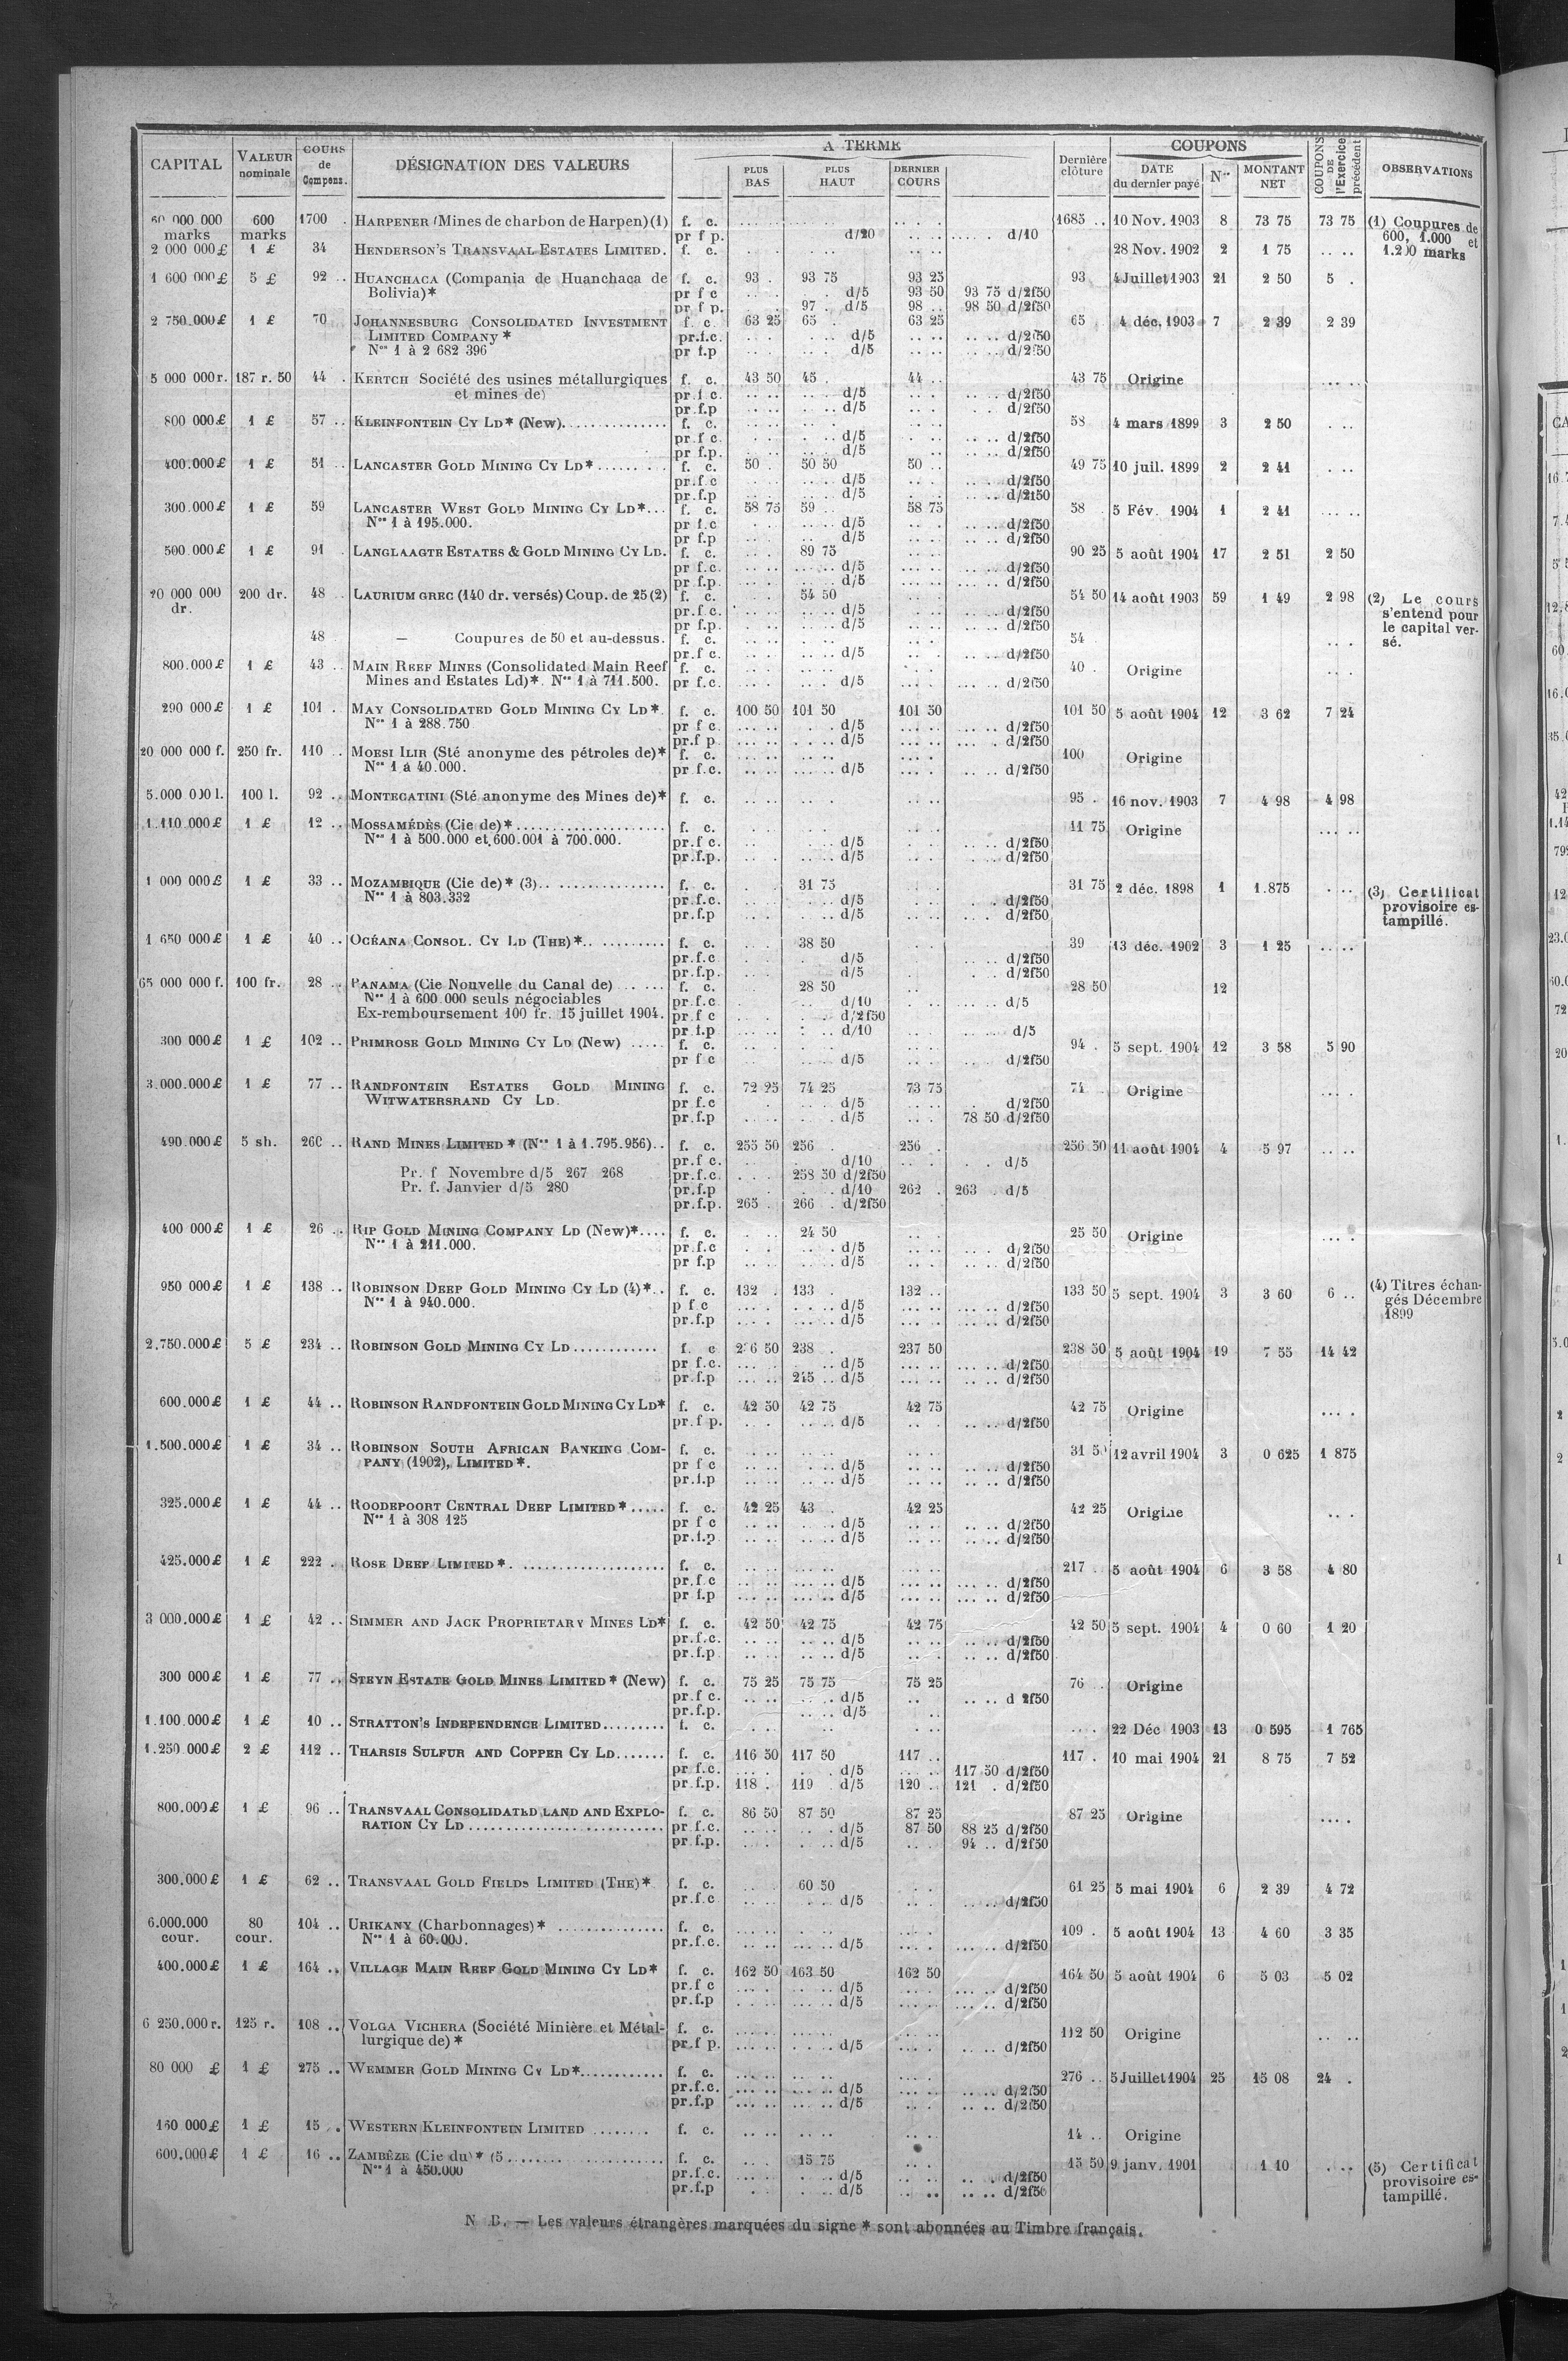 CAPITAL VALEUR nominale COURS de Compens. DÉSIGNATION DES VALEURS A TERME PLUS BAS PLUS HAUT DERNIER COURS Dernière clôture COUPONS DATE du dernier payé Nos MONTANT NET COUPONS DE l'Exercice précédent OBSERVATIONS
60 000 000 600 1700 . HARPENER (Mines de charbon de Harpen) (1) f. c. 1685 .. 10 Nov. 1903 8 73 75 73 75 (1) Coupures de
marks marks pr f p. d/20 d/10 600, 1.000 et
2 000 000 £ 1 £ 34 HENDERSON'S TRANSVAAL ESTATES LIMITED. f. c. 28 Nov. 1902 2 1 75 .. .. 1.200 marks
1 600 000 £ 5 £ 92 .. HUANCHACA (Compania de Huanchaca de f. c. 93 . 93 75 93 25 93 4 Juillet 1903 21 2 50 5 .
Bolivia)* pr f c d/5 93 50 93 75 d/2f50
pr f p. 97 . d/5 98 .. 98 50 d/2f50
2 750.000 £ 1 £ 70 JOHANNESBURG CONSOLIDATED INVESTMENT f. c. 63 25 65 . 63 25 65 4 déc. 1903 7 2 39 2 39
LIMITED COMPANY * pr.f.c. d/5 d/2f50
Nos 1 à 2 682 396 pr f.p d/5 d/2f50
5 000 000 r. 187 r. 50 44 . KERTCH Société des usines métallurgiques f. c. 43 50 45 . 44 .. 43 75 Origine
et mines de) pr f c. d/5 d/2f50
pr.f.p d/5 d/2f50
800 000 £ 1 £ 57 .. KLEINFONTEIN CY LD* (New). f. c. 58 4 mars 1899 3 2 50
pr f c. d/5 d/2f50
pr f.p. d/5 d/2f50
400.000 £ 1 £ 51 .. LANCASTER GOLD MINING CY LD* f. c. 50 . 50 50 50 .. 49 75 10 juil. 1899 2 2 41
pr.f c d/5 d/2f50
pr.f.p d/5 d/2f50
300.000 £ 1 £ 59 LANCASTER WEST GOLD MINING CY LD* f. c. 58 75 59 .. 58 75 58 5 Fév. 1904 1 2 41
Nos 1 à 195.000. pr f.c d/5 d/2f50
pr f.p d/5 d/2f50
500.000 £ 1 £ 91 LANGLAAGTE ESTATES & GOLD MINING CY LD. f. c. 89 75 90 25 5 août 1904 17 2 51 2 50
pr f.c. d/5 d/2f50
pr f.p. d/5 d/2f50
20 000 000 200 dr. 48 .. LAURIUM GREC (140 dr. versés) Coup. de 25 (2) f. c. 54 50 54 50 14 août 1903 59 1 49 2 98 (2) Le cours
dr. pr.f c. d/5 d/2f50 s'entend pour
pr f.p. d/5 d/2f50 le capital ver-
48 — Coupures de 50 et au-dessus. f. c. 54 sé.
pr.f c. d/5 d/2f50
800.000 £ 1 £ 43 .. MAIN REEF MINES (Consolidated Main Reef f. c. 40 . Origine
Mines and Estates Ld)*. Nos 1 à 711.500. pr f.c. d/5 d/2f50
290 000 £ 1 £ 101 . MAY CONSOLIDATED GOLD MINING CY LD* f. c. 100 50 101 50 101 50 101 50 5 août 1904 12 3 62 7 24
Nos 1 à 288.750 pr f c. d/5 d/2f50
pr.f p. d/5 d/2f50
20 000 000 f. 250 fr. 110 .. MOESI ILIR (Sté anonyme des pétroles de)* f. c. 100 Origine
Nos 1 à 40.000. pr.f.c. d/5 d/2f50
5.000 000 l. 100 l. 92 .. MONTECATINI (Sté anonyme des Mines de)* f. c. 95 . 16 nov. 1903 7 4 98 4 98
1.110 000 £ 1 £ 12 .. MOSSAMÉDÈS (Cie de)* f. c. 11 75 Origine
Nos 1 à 500.000 et 600.001 à 700.000. pr.f c. d/5 d/2f50
pr.f.p. d/5 d/2f50
1 000 000 £ 1 £ 33 .. MOZAMBIQUE (Cie de)* (3) f. c. 31 75 31 75 2 déc. 1898 1 1.875 (3) Certificat
Nos 1 à 803.332 pr.f.c. d/5 d/2f50 provisoire es-
pr.f.p d/5 d/2f50 tampillé.
1 650 000 £ 1 £ 40 .. OCÉANA CONSOL. CY LD (THE)* f. c. 38 50 39 13 déc. 1902 3 1 25
pr.f.c d/5 d/2f50
pr.f.p. d/5 d/2f50
65 000 000 f. 100 fr. 28 .. PANAMA (Cie Nouvelle du Canal de) f. c. 28 50 28 50 12
Nos 1 à 600 000 seuls négociables pr.f.c d/10 d/5
Ex-remboursement 100 fr. 15 juillet 1904. pr.f c d/2f50
pr f.p d/10 d/5
300 000 £ 1 £ 102 .. PRIMROSE GOLD MINING CY LD (New) f. c. 94 . 5 sept. 1904 12 3 58 5 90
pr f c d/5 d/2f50
3.000.000 £ 1 £ 77 .. RANDFONTEIN ESTATES GOLD MINING f. c. 72 25 74 25 73 75 74 Origine
WITWATERSRAND CY LD. pr f.c d/5 d/2f50
pr.f.p d/5 78 50 d/2f50
490.000 £ 5 sh. 260 .. RAND MINES LIMITED * (Nos 1 à 1.795.956) f. c. 255 50 256 . 256 . 256 50 11 août 1904 4 5 97
pr.f c. d/10 d/5
Pr. f Novembre d/5 267 268 pr.f.c. 258 50 d/2f50
Pr. f. Janvier d/5 280 pr.f.p d/10 262 . 263 . d/5
pr.f.p. 265 . 266 . d/2f50
400 000 £ 1 £ 26 .. RIP GOLD MINING COMPANY LD (New)* f. c. 24 50 25 50 Origine
Nos 1 à 211.000. pr.f.c d/5 d/2f50
pr f.p d/5 d/2f50
950 000 £ 1 £ 138 .. ROBINSON DEEP GOLD MINING CY LD (4)* f. c. 132 . 133 . 132 .. 133 50 5 sept. 1904 3 3 60 6 .. (4) Titres échan-
Nos 1 à 940.000. p f c d/5 d/2f50 gés Décembre
pr.f.p d/5 d/2f50 1899
2.750.000 £ 5 £ 234 .. ROBINSON GOLD MINING CY LD f. c 50 238 . 237 50 238 50 5 août 1904 19 7 55 14 42
pr f.c. d/5 d/2f50
pr.f.p 245 .. d/5 d/2f50
600.000 £ 1 £ 44 .. ROBINSON RANDFONTEIN GOLD MINING CY LD* f. c. 42 50 42 75 42 75 42 75 Origine
pr.f p. d/5 d/2f50
1.500.000 £ 1 £ 34 .. ROBINSON SOUTH AFRICAN BANKING COM- f. c. 31 50 12 avril 1904 3 0 625 1 875
PANY (1902), LIMITED*. pr f c d/5 d/2f50
pr.f.p d/5 d/2f50
325.000 £ 1 £ 44 .. ROODEPOORT CENTRAL DEEP LIMITED * f. c. 42 25 43 .. 42 25 42 25 Origine
Nos 1 à 308 125 pr f c d/5 d/2f50
pr.f.p d/5 d/2f50
425.000 £ 1 £ 222 . ROSE DEEP LIMITED * f. c. 217 .. 5 août 1904 6 3 58 4 80
pr.f.c d/5 d/2f50
pr f.p d/5 d/2f50
3 000.000 £ 1 £ 42 .. SIMMER AND JACK PROPRIETARY MINES LD* f. c. 42 50 42 75 42 75 42 50 5 sept. 1904 4 0 60 1 20
pr.f.c. d/5 d/2f50
pr.f.p. d/5 d/2f50
300 000 £ 1 £ 77 .. STEYN ESTATE GOLD MINES LIMITED * (New) f. c. 75 25 75 75 75 25 76 . Origine
pr.f c. d/5 d 2f50
pr.f.p. d/5
1.100.000 £ 1 £ 10 .. STRATTON'S INDEPENDENCE LIMITED f. c. 22 Déc 1903 13 0 595 1 765
1.250.000 £ 2 £ 112 .. THARSIS SULFUR AND COPPER CY LD f. c. 116 50 117 50 117 .. 117 . 10 mai 1904 21 8 75 7 52
pr f.c. d/5 117 50 d/2f50
pr.f.p. 118 . 119 . d/5 120 .. 121 . d/2f50
800.000 £ 1 £ 96 .. TRANSVAAL CONSOLIDATED LAND AND EXPLO- f. c. 86 50 87 50 87 25 87 25 Origine
RATION CY LD pr f.c. d/5 87 50 88 25 d/2f50
pr f.p. d/5 94 .. d/2f50
300.000 £ 1 £ 62 .. TRANSVAAL GOLD FIELDS LIMITED (THE)* f. c. 60 50 61 25 5 mai 1904 6 2 39 4 72
pr.f.c d/5 d/2f50
6.000.000 80 104 .. URIKANY (Charbonnages) * f. c. 109 . 5 août 1904 13 4 60 3 35
cour. cour. Nos 1 à 60.000. pr.f.c. d/5 d/2f50
400.000 £ 1 £ 164 .. VILLAGE MAIN REEF GOLD MINING CY LD* f. c. 162 50 163 50 162 50 164 50 5 août 1904 6 5 03 5 02
pr.f c d/5 d/2f50
pr.f.p d/5 d/2f50
6 250.000 r. 125 r. 108 .. VOLGA VICHERA (Société Minière et Métal- f. c. 112 50 Origine
lurgique de) * pr.f p. d/5 d/2f50
80 000 £ 1 £ 275 .. WEMMER GOLD MINING CY LD* f. c. 276 .. 5 Juillet 1904 25 15 08 24 .
pr.f.c. d/5 d/2f50
pr.f.p d/5 d/2f50
160 000 £ 1 £ 15 . WESTERN KLEINFONTEIN LIMITED f. c. 14 .. Origine
600.000 £ 1 £ 16 .. ZAMBÈZE (Cie du) * (5 f. c. 15 75 15 50 9 janv. 1901 1 10 (5) Certificat
Nos 1 à 450.000 pr.f.c. d/5 d/2f50 provisoire es-
pr.f.p d/5 d/2f50 tampillé.
N B. — Les valeurs étrangères marquées du signe * sont abonnées au Timbre français.